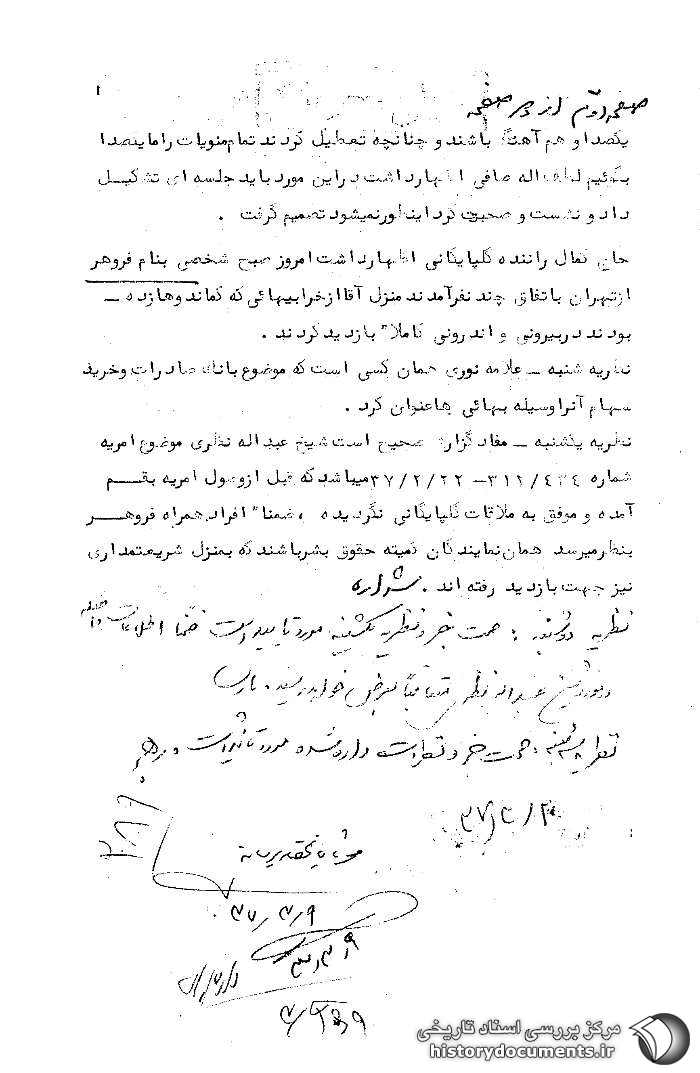 ۱
صفحه دوم از دو صفحه
یکصدا و هم آهنگ باشند و چنانچه تعطیل کردند تمام منویات را ما یکصدا
بگوئیم لطف اله صافی اظهارداشت دراین مورد باید جلسه ای تشکیل
داد و نشست و صحبت کرد اینطور نمیشود تصمیم گرفت .
حاجی راننده گلپایگانی اظهارداشت امروز صبح شخصی بنام فروهر
ازتهران باتفاق چند نفر آمدند منزل آقا ازخرابیهائی که کماندوها زده –
بودند دربیرونی و اندرونی کاملا" بازدید کردند .
نظریه شنبه – علامه نوری همان کسی است که موضوع بانک صادرات وخرید
سهام آنرا وسیله بهائی ها عنوان کرد .
نظریه یکشنبه – مفاد گزارش صحیح است شیخ عبداله نظری موضوع امریه
شماره ۳۱۲/۴۳۴ – ۳۷/۲/۲۲ میباشد که قبل از وصول امریه بقم
آمده و موفق به ملاقات گلپایگانی نگردیده ، ضمنا" افراد همراه فروهر
بنظرمیرسد همان نمایندگان کمیته حقوق بشر باشند که بمنزل شریعتمداری
نیز جهت بازدید رفته اند . شراره
نظریه دوشنبه : صحت خبر و نظریه یکشنبه مورد تایید است ضمناً اطلاعات
شیخ عبداله نظری متعاقباً بعرض خواهد رسید .
نظریه سه شنبه : صحت خبر و نظرات داده شده مورد تائید است
۳۷/۳/۹
۳/۹
مرکز بررسی اسناد تاریخی
historydocuments.ir